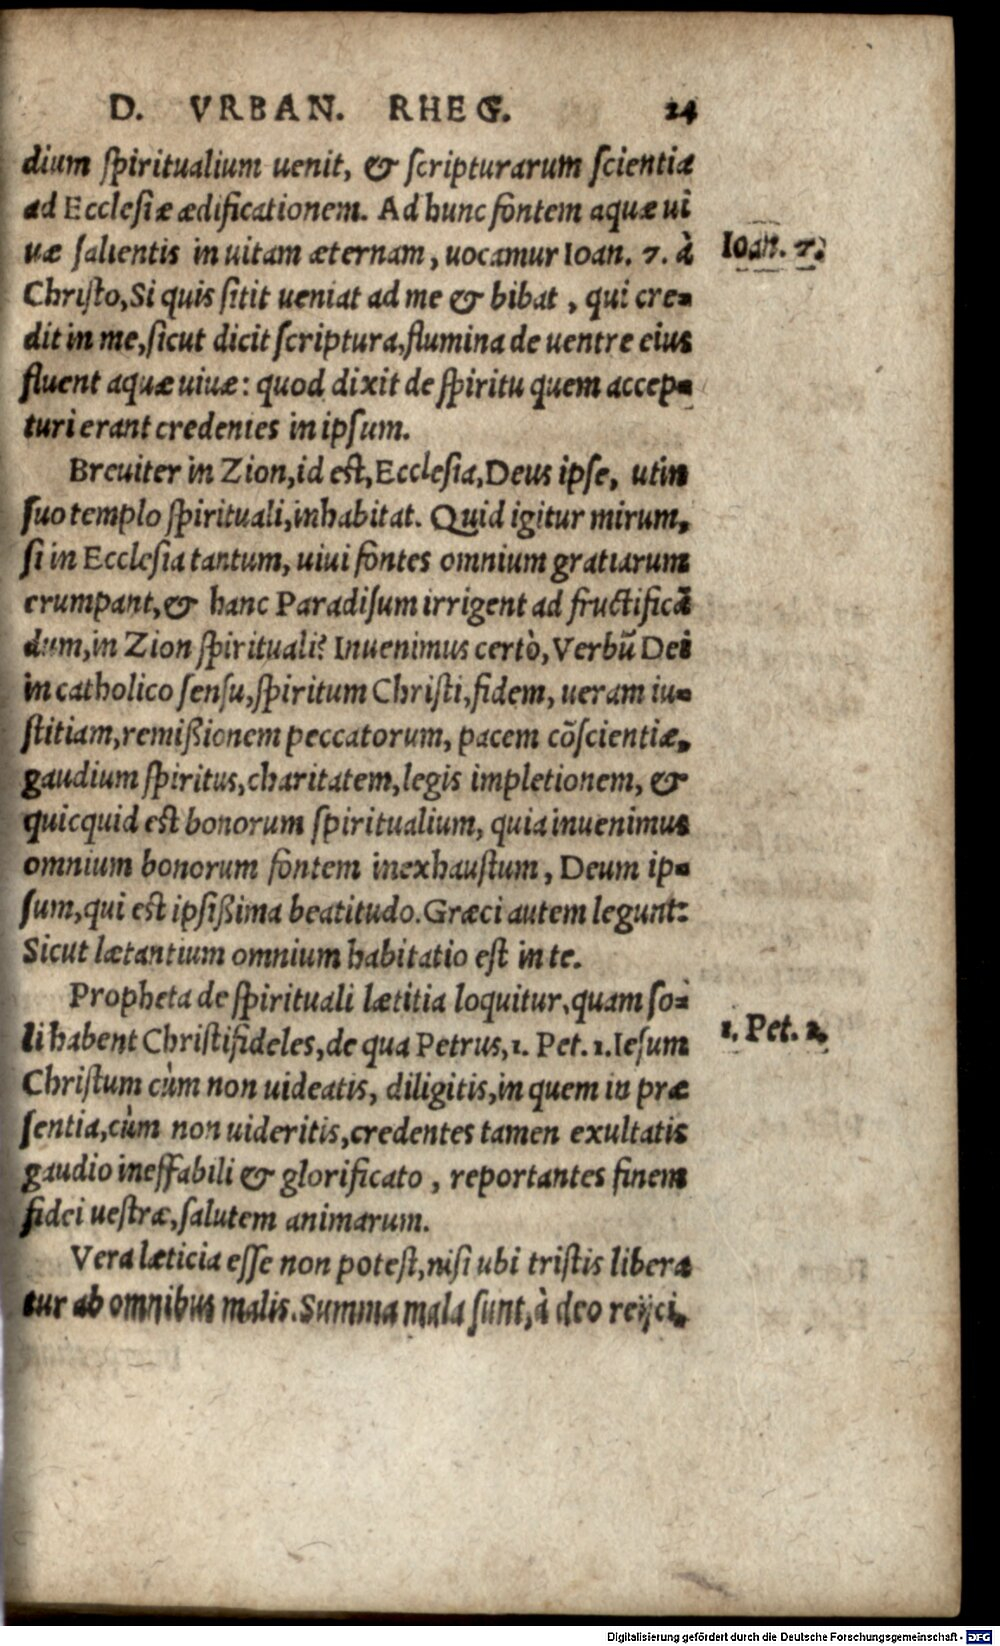 D. VRBAN. RHEG. 24
dium ſpiritualium uenit, & ſcripturarum ſcientiæ
ad Eccleſiæ ædificationem. Ad hunc fontem aquæ ui
uæ ſalientis in uitam æternam, uocamur Ioan. 7. à
Ioan. 7.
Chriſto, Si quis ſitit ueniat ad me & bibat, qui cre-
dit in me, ſicut dicit ſcriptura, flumina de uentre eius
fluent aquæ uiuæ: quod dixit de ſpiritu quem accep-
turi erant credentes in ipſum.
Breuiter in Zion, id eſt, Eccleſia, Deus ipſe, ut in
ſuo templo ſpirituali, inhabitat. Quid igitur mirum,
ſi in Eccleſia tantum, uiui fontes omnium gratiarum
erumpant, & hanc Paradiſum irrigent ad fructificā
dum, in Zion ſpirituali? Inuenimus certò, Verbū Dei
in catholico ſenſu, ſpiritum Chriſti, fidem, ueram iu-
ſtitiam, remißionem peccatorum, pacem cōſcientiæ,
gaudium ſpiritus, charitatem, legis impletionem, &
quicquid eſt bonorum ſpiritualium, quia inuenimus
omnium bonorum fontem inexhauſtum, Deum ip-
ſum, qui eſt ipſißima beatitudo. Græci autem legunt:
Sicut lætantium omnium habitatio eſt in te.
Propheta de ſpirituali lætitia loquitur, quam ſo-
li habent Chriſti fideles, de qua Petrus, 1. Pet. 1. Ieſum
1. Pet. 1.
Chriſtum cùm non uideatis, diligitis, in quem in præ
ſentia, cùm non uideritis, credentes tamen exultatis
gaudio ineffabili & glorificato, reportantes finem
fidei ueſtræ, ſalutem animarum.
Vera læticia eſſe non poteſt, niſi ubi triſtis libera
tur ab omnibus malis. Summa mala ſunt, à deo reijci,
Digitalisierung gefördert durch die Deutsche Forschungsgemeinschaft - DFG